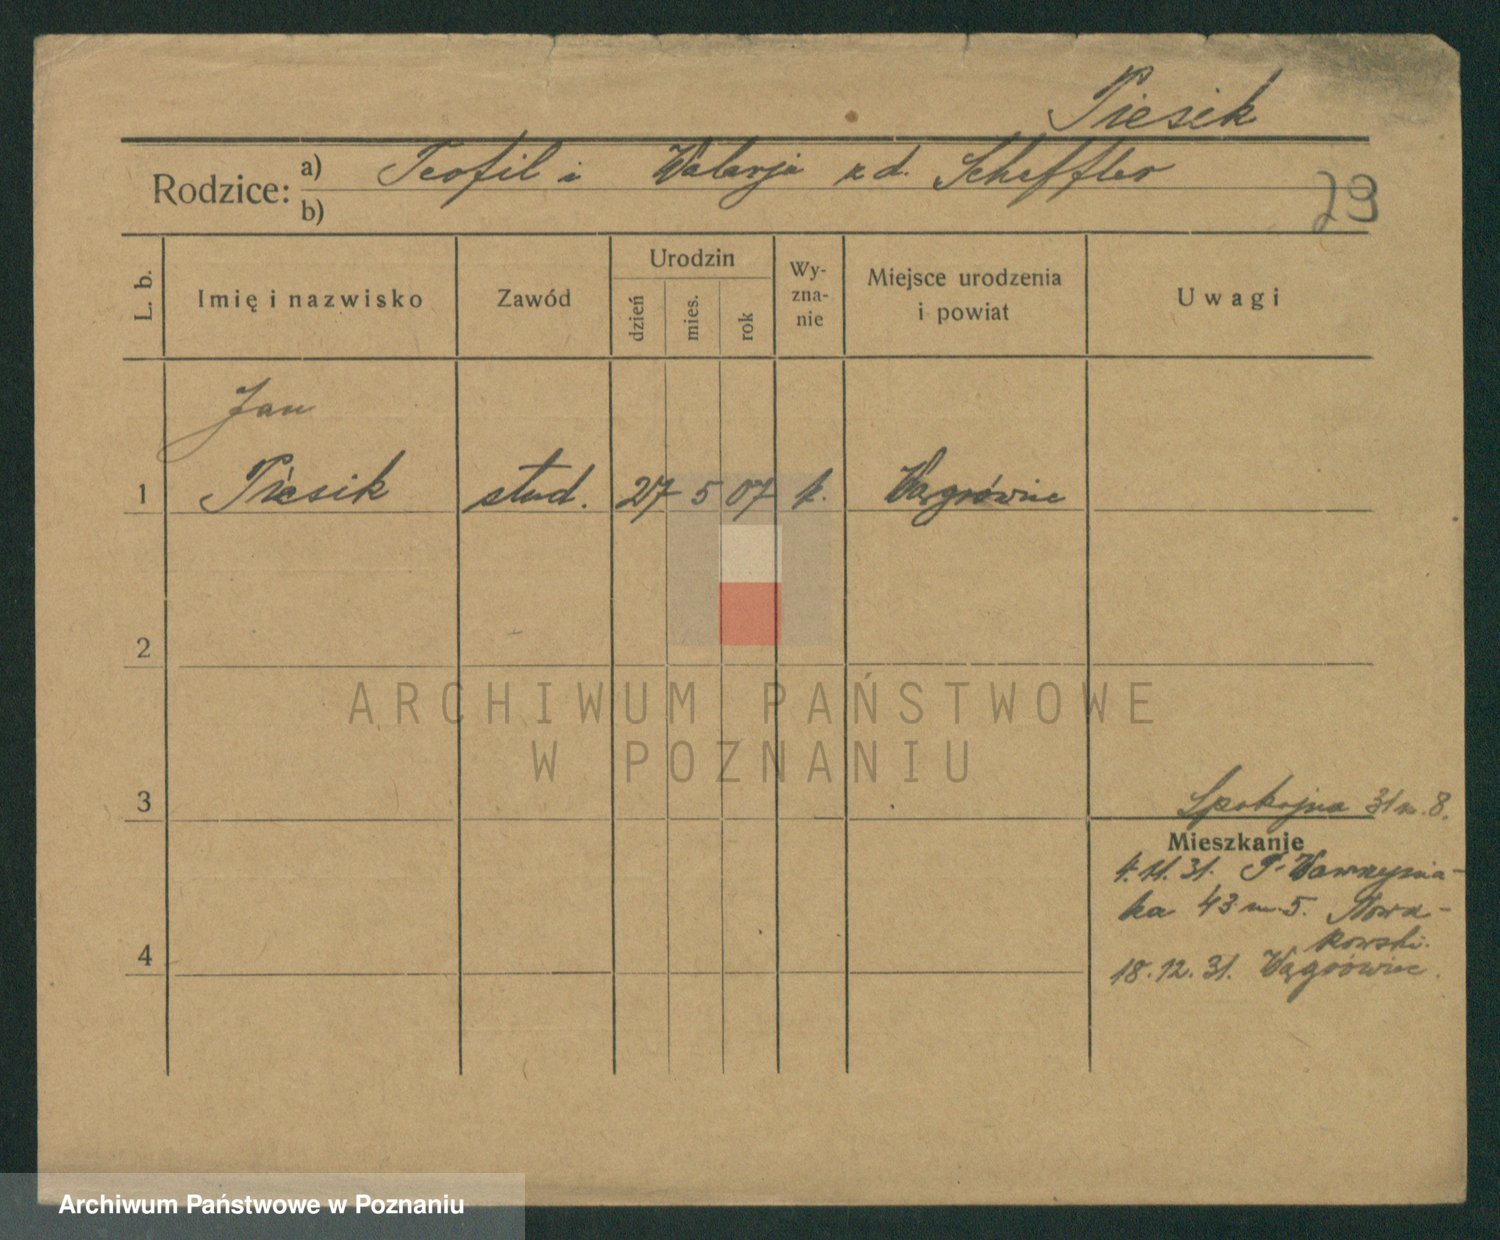 Piesik
Rodzice: a) Teofil i Walerja z d. Scheffler
b)
23
L. b. Imię i nazwisko Zawód Urodzin dzień mies. rok Wy-zna-nie Miejsce urodzenia i powiat Uwagi
Jan
1 Piesik stud. 27 5 07 k. Wągrówiec
2
ARCHIWUM PAŃSTWOWE
W POZNANIU
3
Spokojna 31 m. 8.
Mieszkanie
4.11.31. P. Wawrzynia-
ka 43 m. 5. Nowa-
kowski.
4
18.12.31. Wągrówiec.
Archiwum Państwowe w Poznaniu